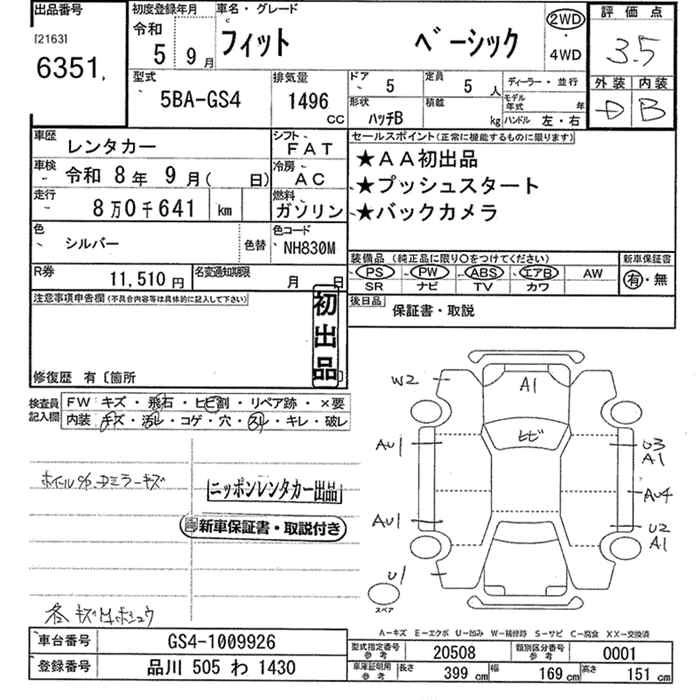 出品番号
[2163]
6351
初度登録年月
令和
5 9月
車名・グレード
フィット ベーシック
2WD
4WD
評価点
3.5
外装 内装
D B
型式
5BA-GS4
排気量
1496
CC
ドア
5
定員
5 人
形状
ハッチB
積載
kg
ディーラー・並行
モデル年式 年
ハンドル 左・右
車歴
レンタカー
シフト
FAT
車検
令和 8年 9月( 日)
冷房
AC
走行
8万0千641 km
燃料
ガソリン
色
シルバー
色替
色コード
NH830M
R券
11,510円
名変通知期限
月 日
セールスポイント(正常に機能するものに限ります)
★AA初出品
★プッシュスタート
★バックカメラ
装備品(純正品に限り○をつけてください)
PS PW ABS エアB AW
SR ナビ TV カワ
新車保証書
有・無
後日品
保証書・取説
注意事項申告欄(不具合内容等は具体的に記入して下さい)
初出品
修復歴 有〔箇所
検査員記入欄
FW キズ・飛石・ヒビ割・リペア跡・×要
内装 キズ・汚レ・コゲ・穴・スレ・キレ・破レ
ニッポンレンタカー出品
新車保証書・取説付き
W2
A1
ヒビ
AU1
U3
A1
AU4
AU1
U2
A1
U1
スペア
A-キズ E-エクボ U-凹み W-補修跡 S-サビ C-腐食 XX-交換済
車台番号
GS4-1009926
登録番号
品川 505 わ 1430
型式指定番号
参考
20508
類別区分番号
参考
0001
車庫証明用
参考
長さ
399 cm
幅
169 cm
高さ
151 cm